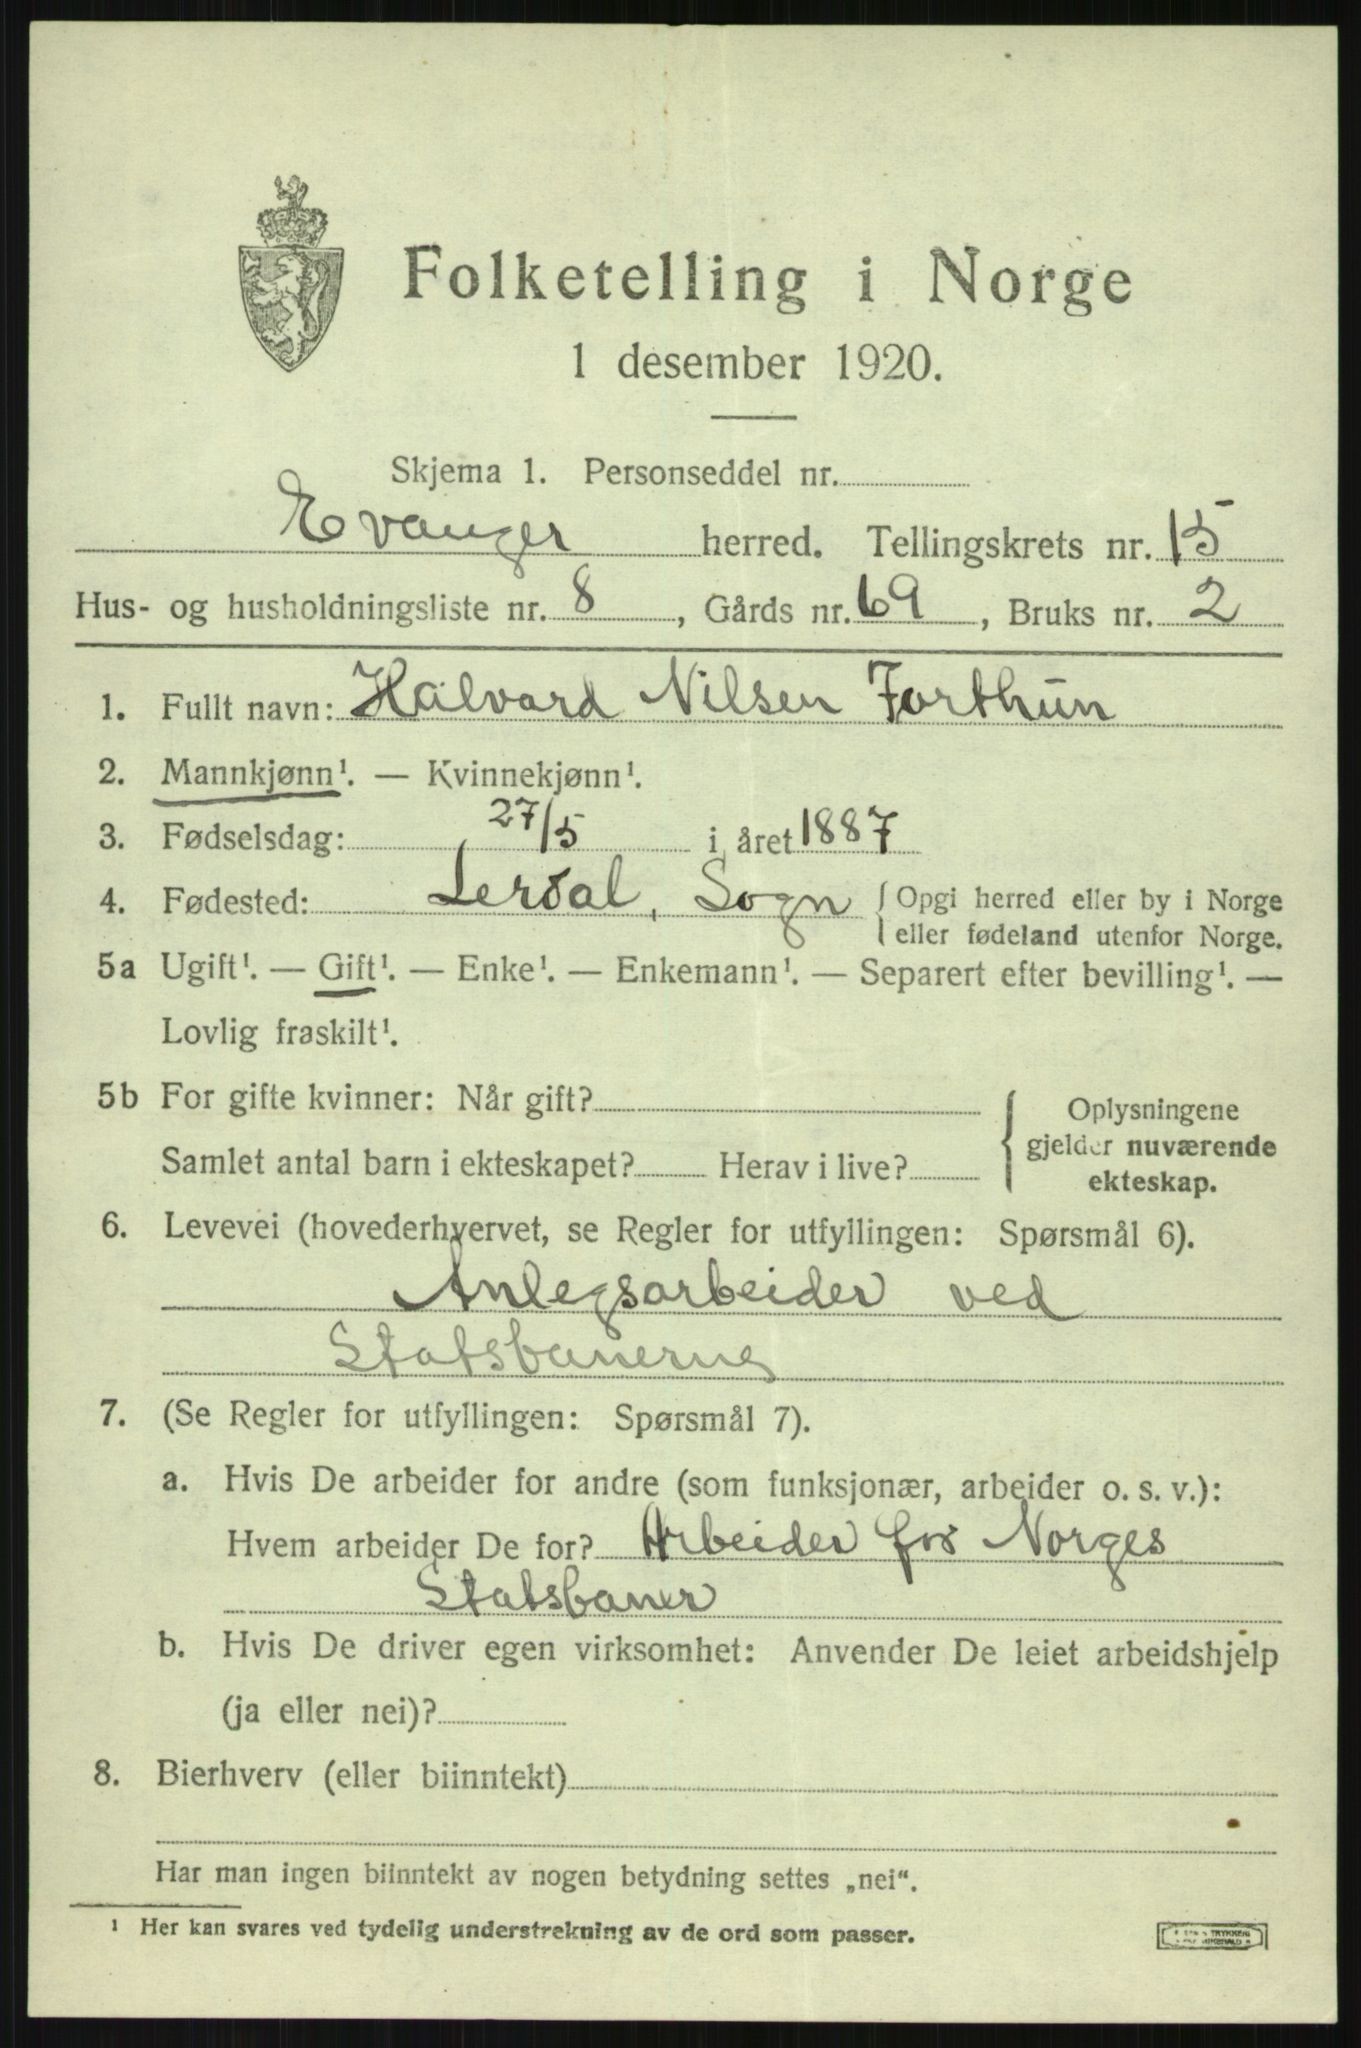 Folketelling i Norge
1 desember 1920.
Skjema 1. Personseddel nr.
Evanger herred. Tellingskrets nr. 15
Hus- og husholdningsliste nr. 8, Gårds nr. 69, Bruks nr. 2
1. Fullt navn: Halvard Nilsen Forthun
2. Mannkjønn¹. — Kvinnekjønn¹.
3. Fødselsdag: 27/5 i året 1887
4. Fødested: Lerdal, Sogn { Opgi herred eller by i Norge
eller fødeland utenfor Norge.
5a Ugift¹. — Gift¹. — Enke¹. — Enkemann¹. — Separert efter bevilling¹. —
Lovlig fraskilt¹.
5b For gifte kvinner: Når gift?
Samlet antal barn i ekteskapet? Herav i live?
{ Oplysningene
gjelder nuværende
ekteskap.
6. Levevei (hovederhvervet, se Regler for utfyllingen: Spørsmål 6).
Anlegsarbeider ved
Statsbanerne
7. (Se Regler for utfyllingen: Spørsmål 7).
a. Hvis De arbeider for andre (som funksjonær, arbeider o. s. v.):
Hvem arbeider De for? Arbeider for Norges
Statsbaner
b. Hvis De driver egen virksomhet: Anvender De leiet arbeidshjelp
(ja eller nei)?
8. Bierhverv (eller biinntekt)
Har man ingen biinntekt av nogen betydning settes „nei“.
¹ Her kan svares ved tydelig understrekning av de ord som passer.